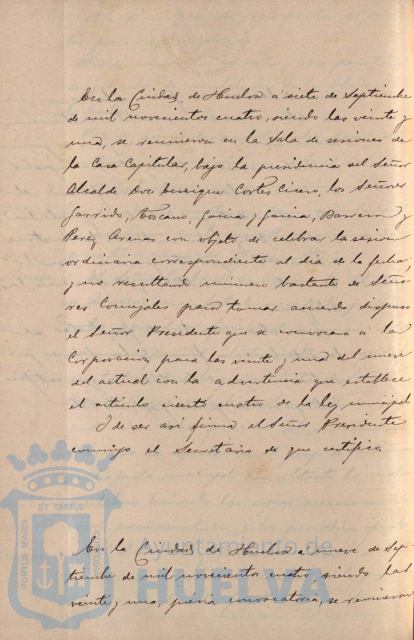 En la Ciudad de Huelva a siete de Septiembre
de mil novecientos cuatro, siendo las veinte y
una, se reunieron en la Sala de sesiones de
la Casa Capitular, bajo la presidencia del Señor
Alcalde Don Enrique Cortes Cisero, los Señores
Garrido, Toscano, Garcia y Garcia, Barrera y
Perez Arenas con objeto de celebrar la sesion
ordinaria correspondiente al dia de la fecha,
y no resultando número bastante de Seño
res Concejales para tomar acuerdo dispuso
el Señor Presidente que se convocara a la
Corporacion para las veinte y una del nueve
del actual con la advertencia que establece
el artículo ciento cuatro de la ley municipal
I de ser asi firma el Señor Presidente
conmigo el Secretario de que certifico
En la Ciudad de Huelva a nueve de Sep
tiembre de mil novecientos cuatro, siendo las
veinte y una, previa convocatoria, se reunieron
PORTUS MARIS
ET TERRÆ
Ayuntamiento de
HUELVA